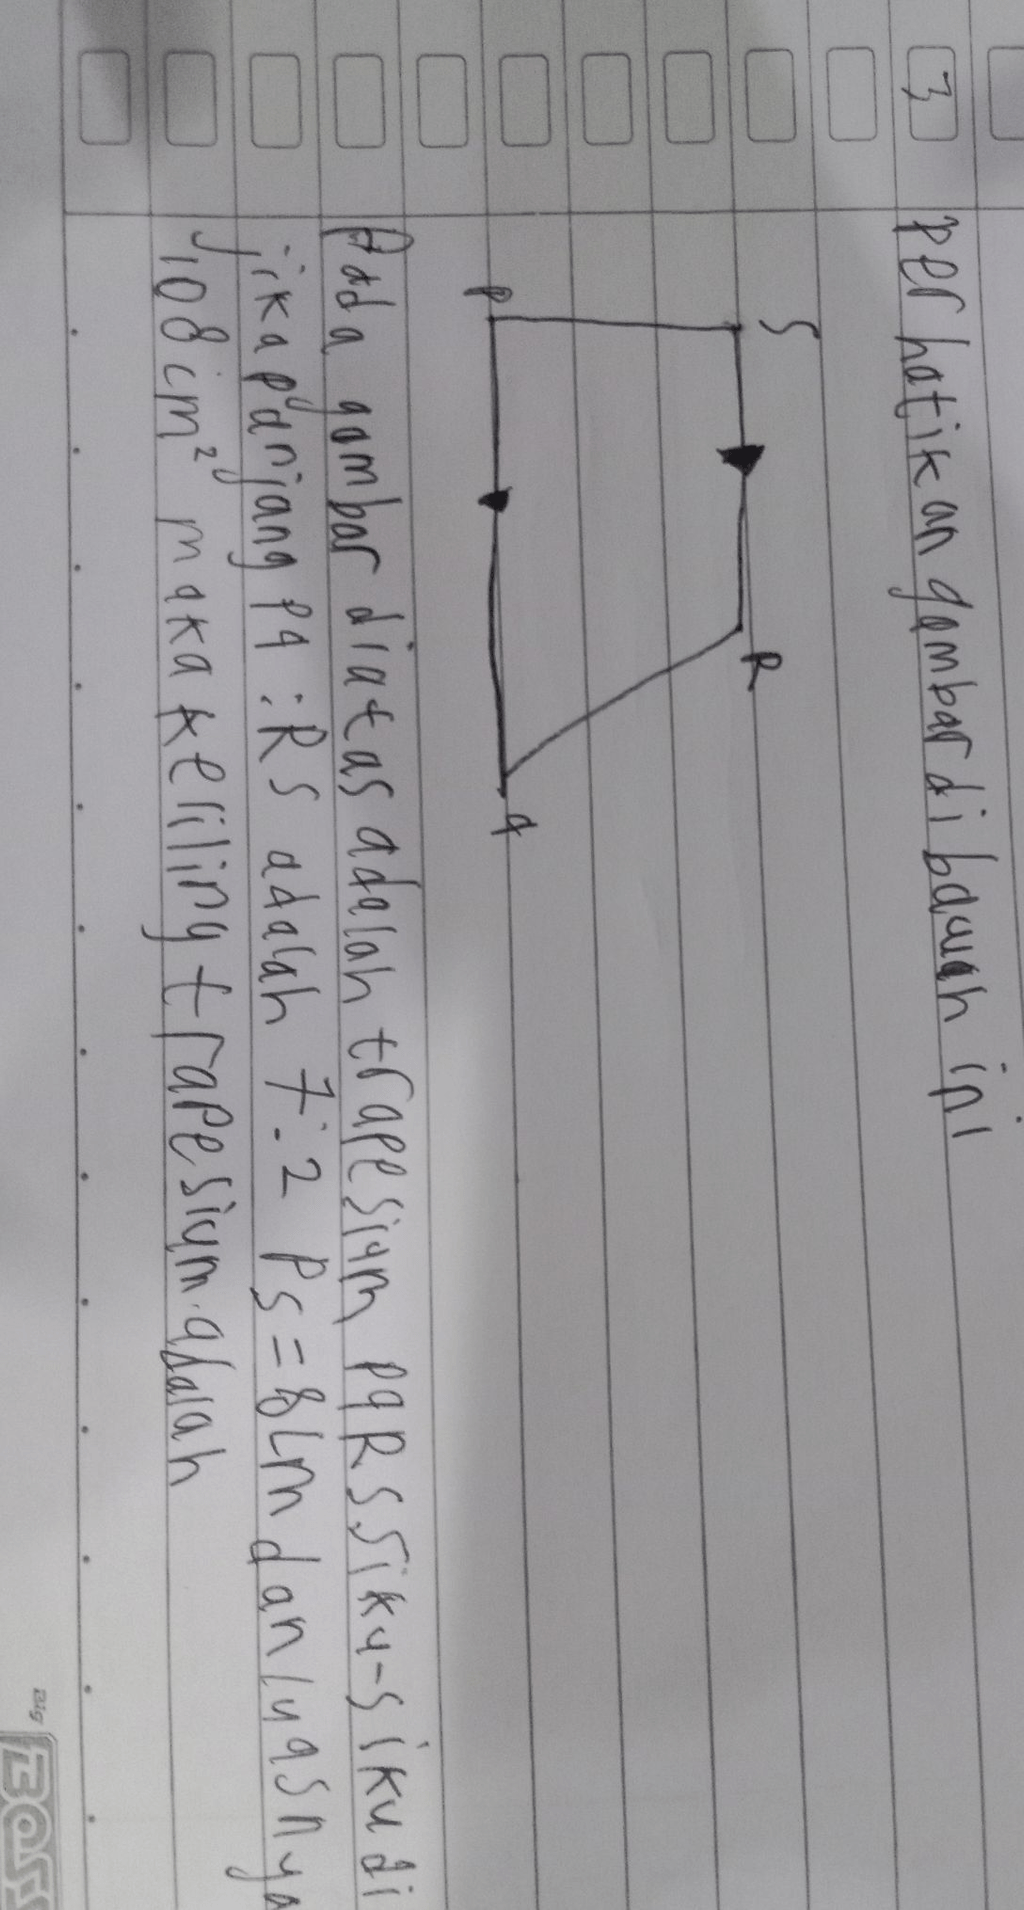 3 perhatikan gambar di bawah ini
S R
P q
Pada gambar diatas adalah trapesium pqRs siku-siku di
jika panjang pq : RS adalah 7:2 Ps = 8 cm dan luasnya
108 cm² maka keliling trapesium adalah
Big
BOSS